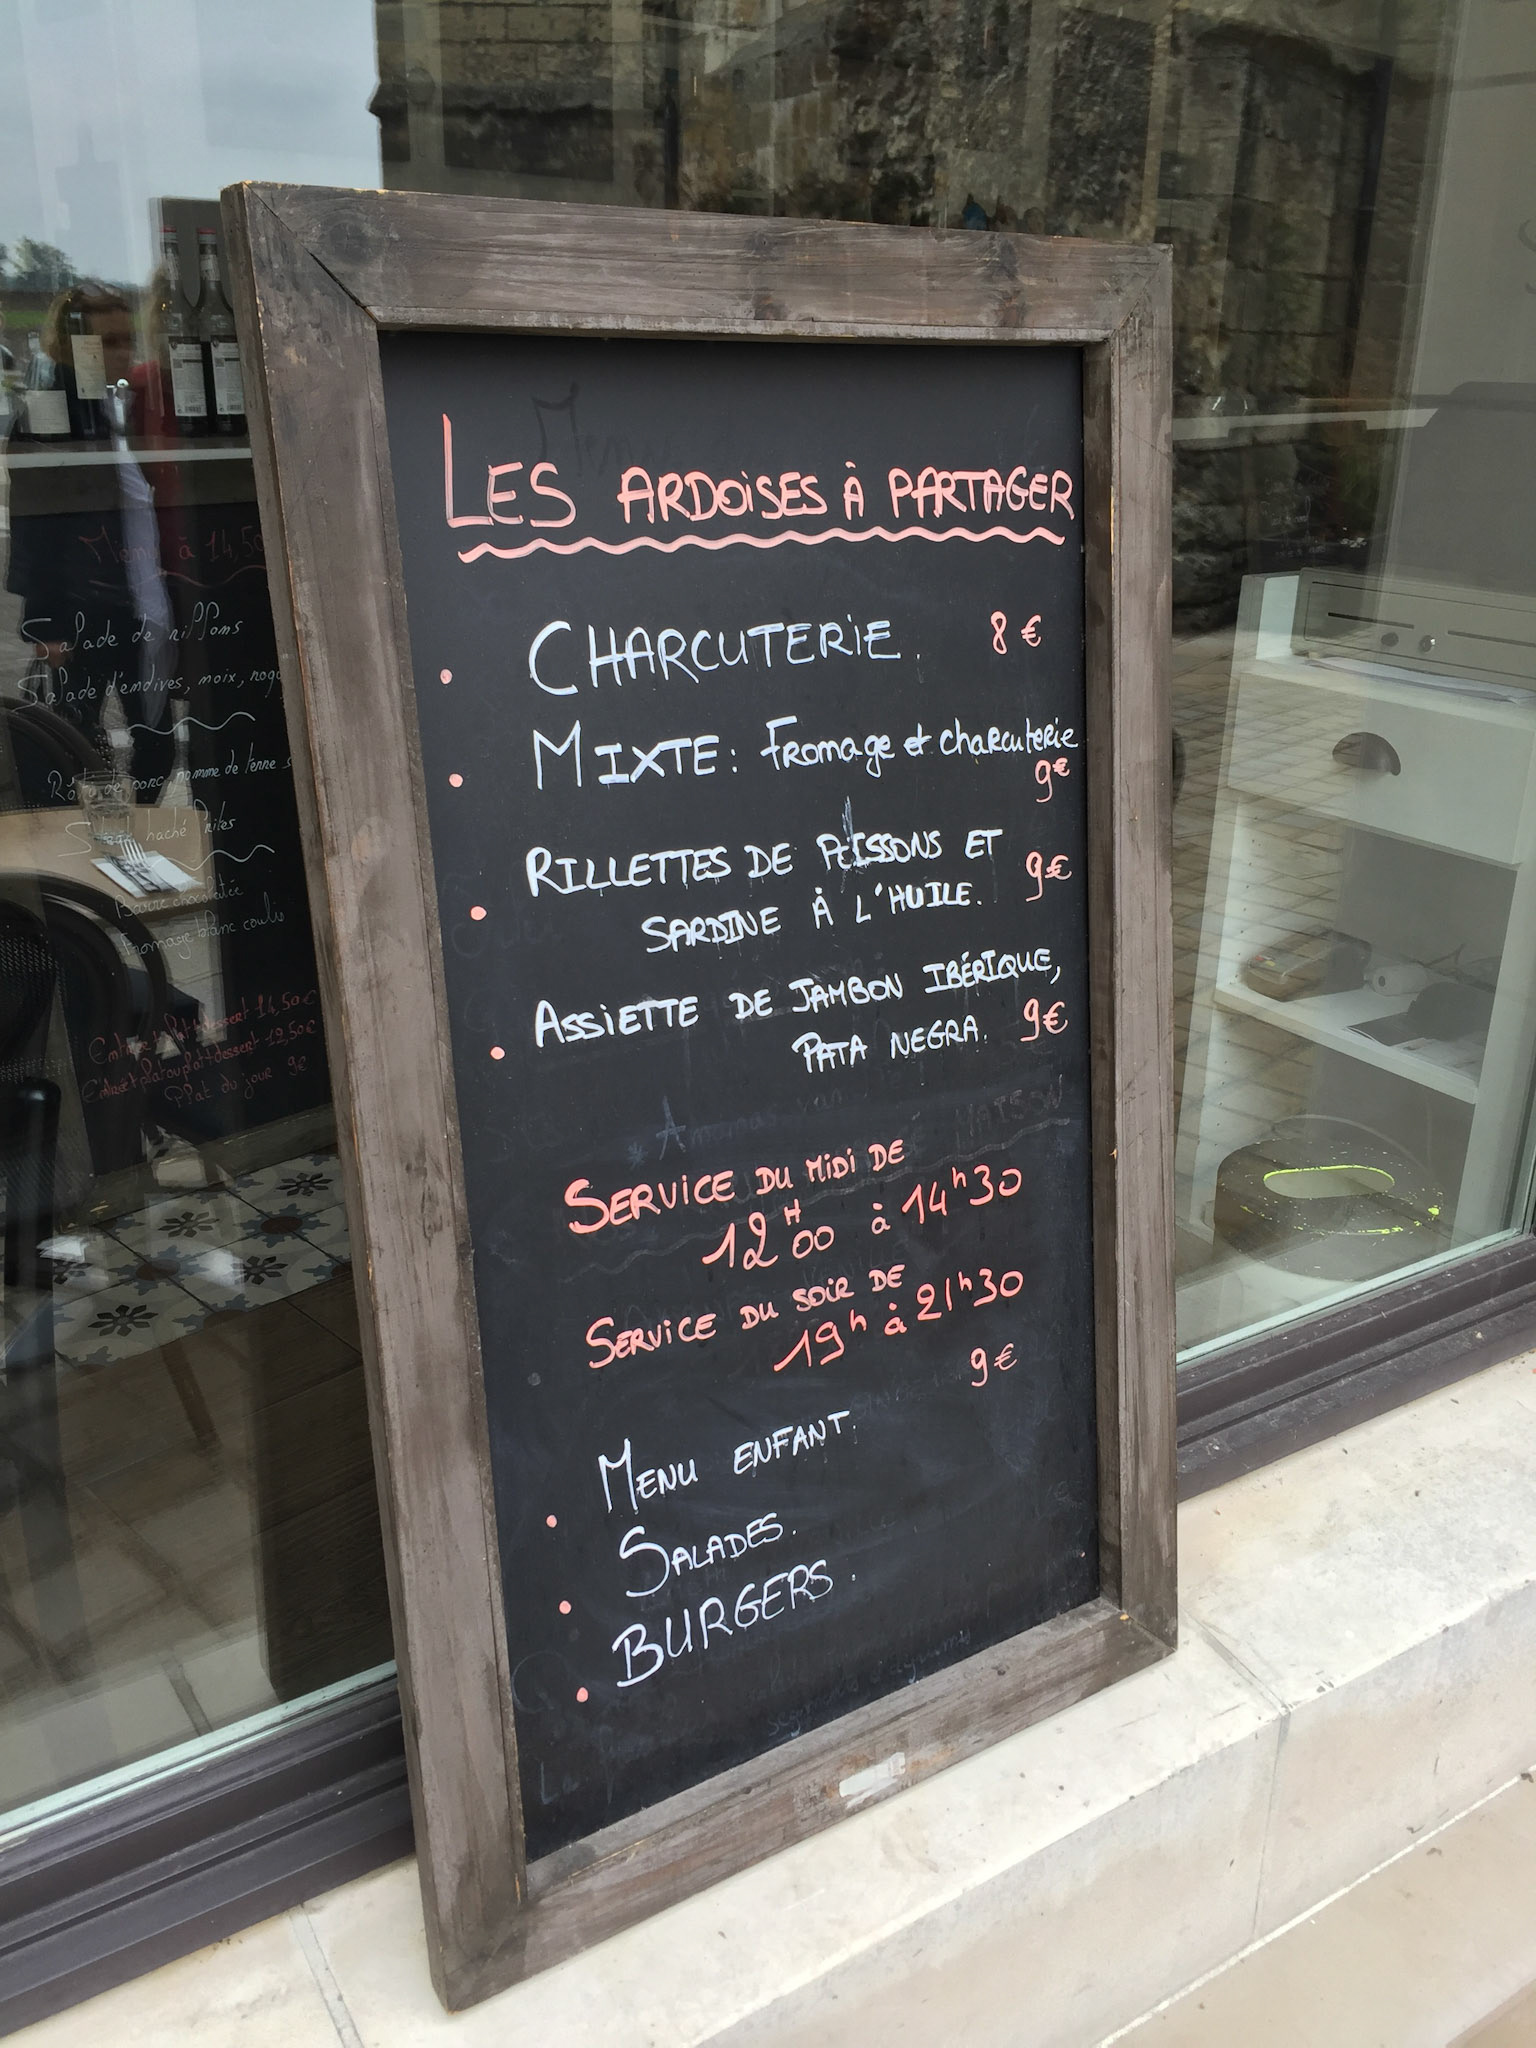 LES ARDOISES À PARTAGER
• CHARCUTERIE. 8 €
• MIXTE: Fromage et charcuterie
9€
• RILLETTES DE POISSONS ET
SARDINE À L'HUILE. 9€
• ASSIETTE DE JAMBON IBÉRIQUE,
PATA NEGRA. 9€
SERVICE DU MIDI DE
12H00 à 14h30
SERVICE DU SOIR DE
19h à 21h30
9€
• MENU ENFANT.
• SALADES.
• BURGERS.
Menu à 14,50
Salade de rillons
Salade d'endives, noix,
Rôti de porc, pomme de terre
Steak haché frites
Barre chocolatée
Fromage blanc coulis
Entrée+plat+dessert 14,50€
Entrée+plat ou plat+dessert 12,50€
Plat du jour 9€